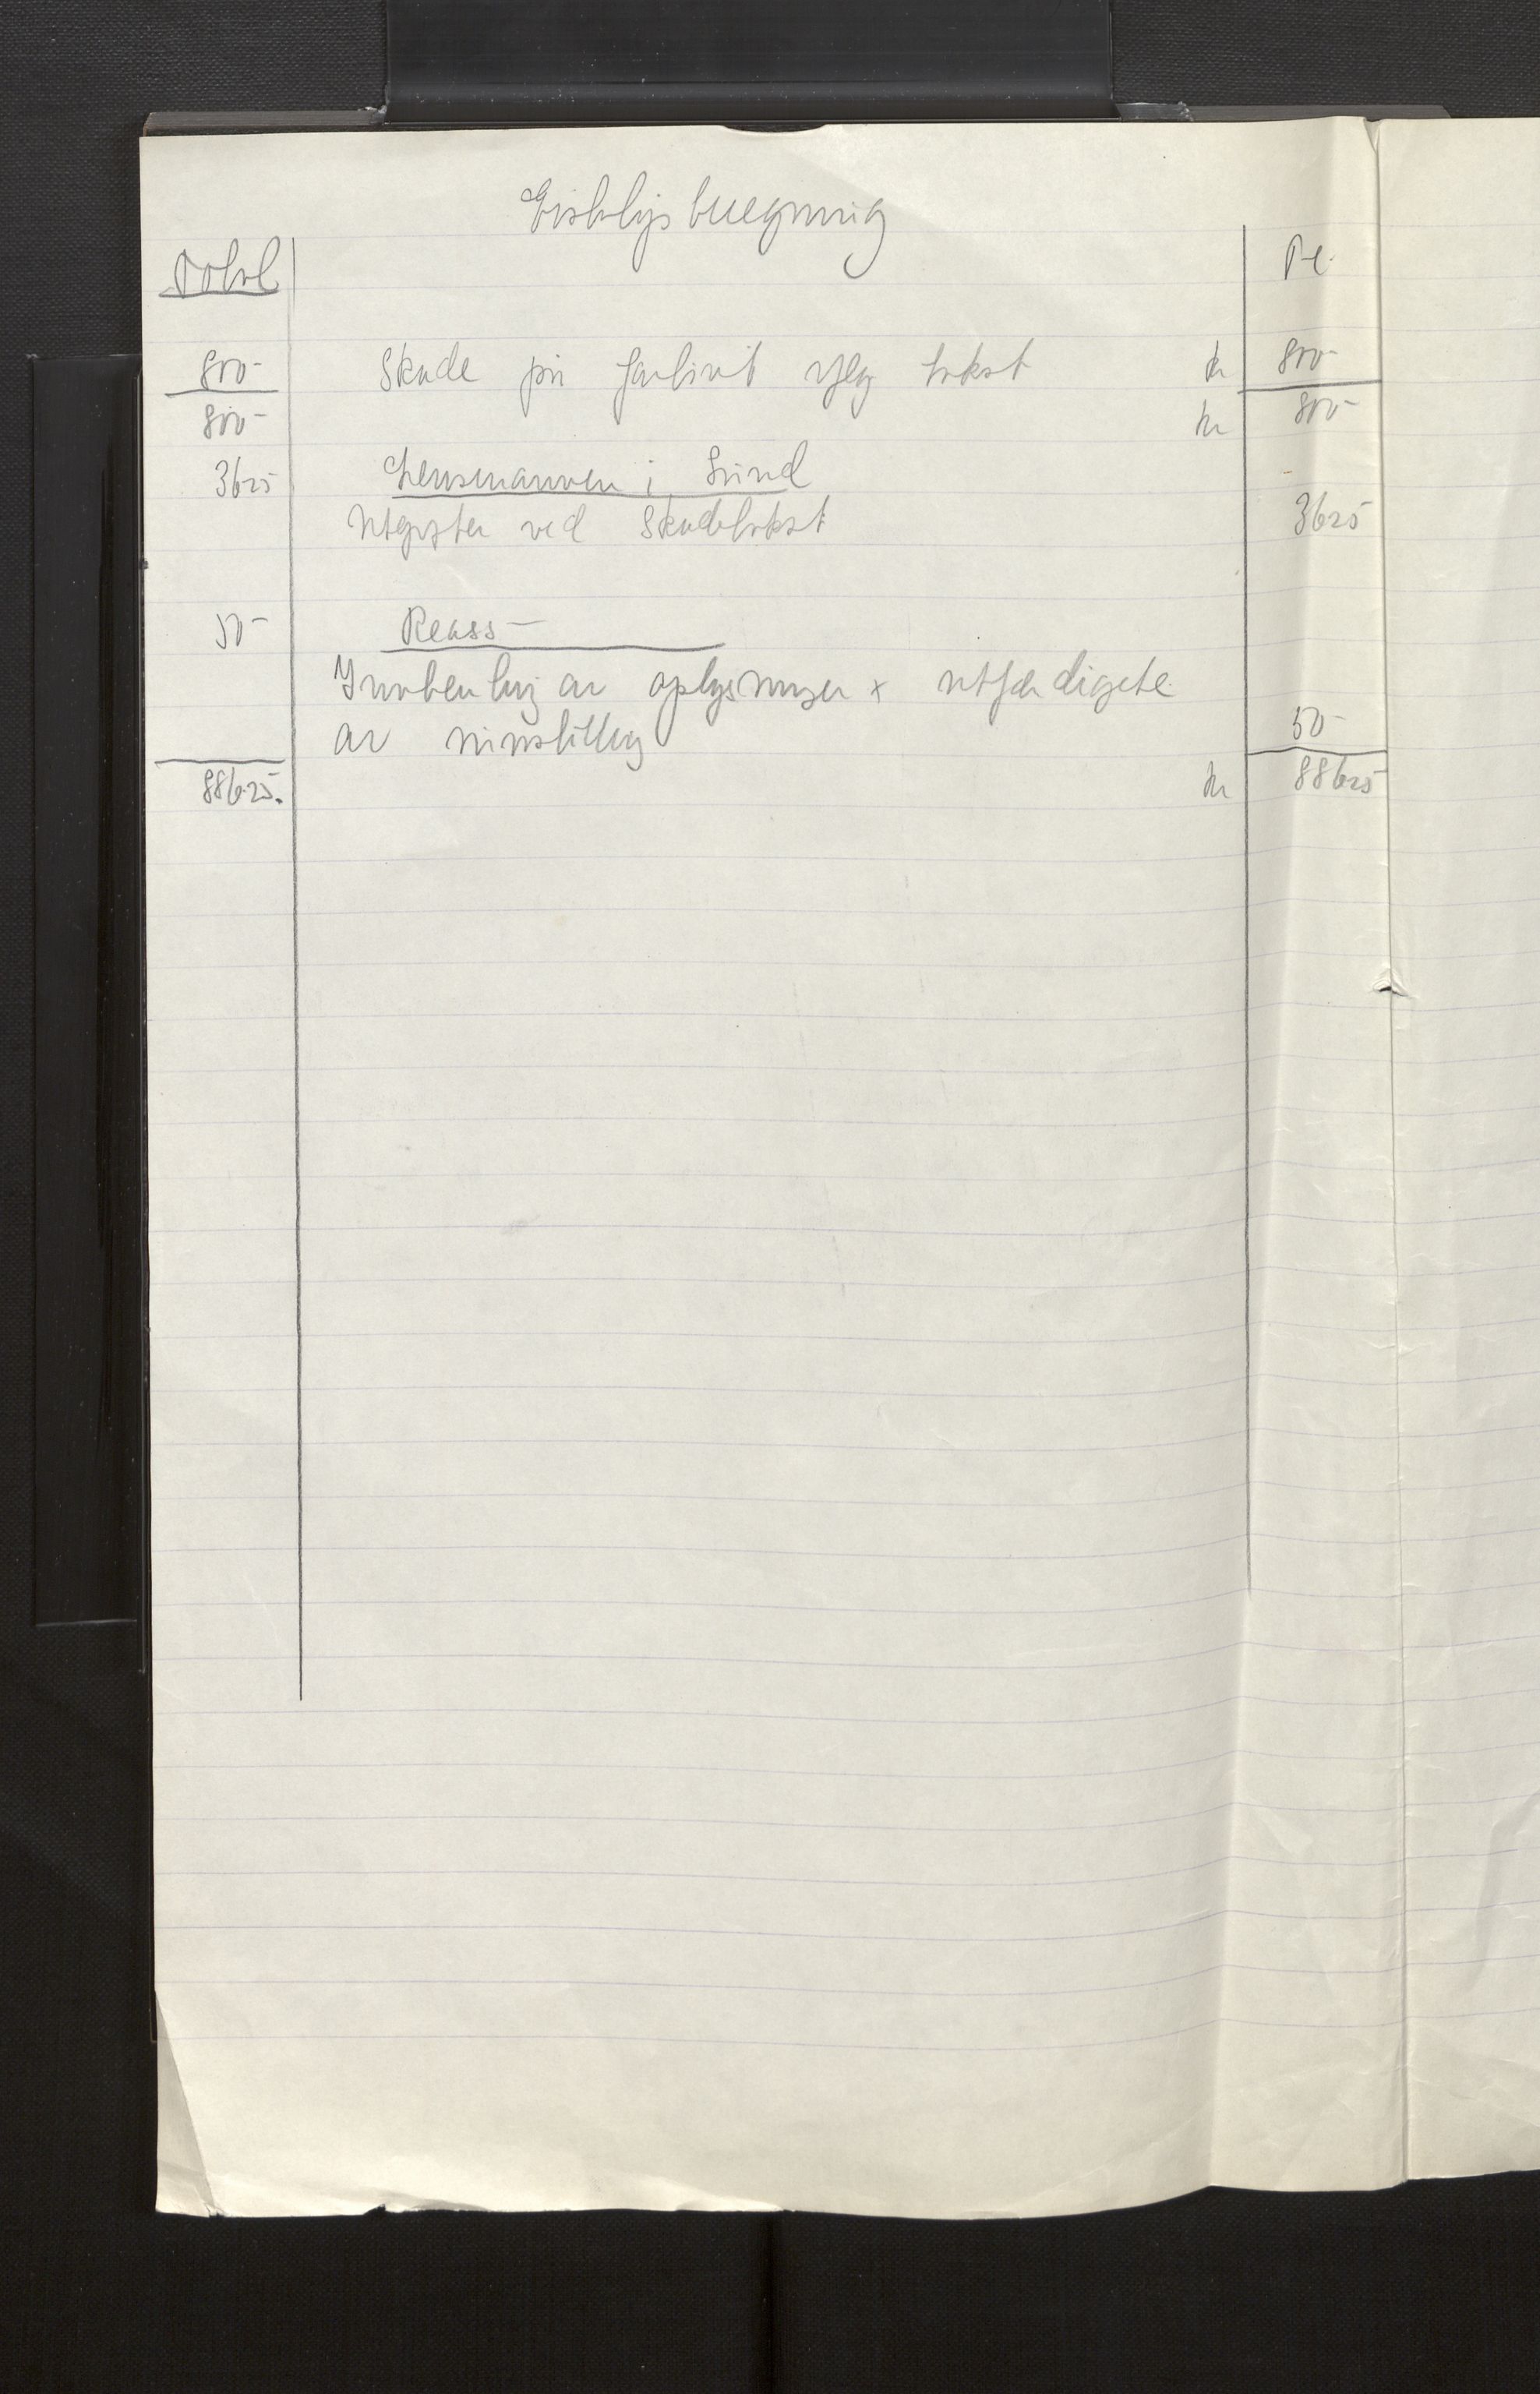 Erstatningsberegning
Total P.A.
800- Skade på fartøiet iflg takst kr 800-
800- kr 800-
36 25 Lensmannen i Sund
Utgifter ved Skadetakst 36 25
50- Reass-
Innhenting av oplysninger + utferdigelse
av innstilling 50-
886 25. kr 886 25